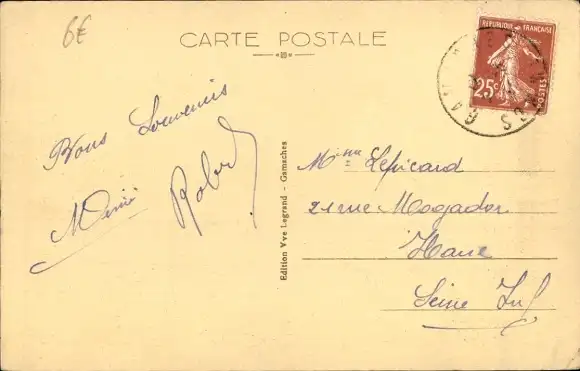 6€
CARTE POSTALE
REPUBLIQUE FRANÇAISE
25c
POSTES
Bons Souvenirs
Mimi Robert
Edition Vve Legrand - Gamaches
Mme Lepicard
21 rue Mogador
Havre
Seine Inf